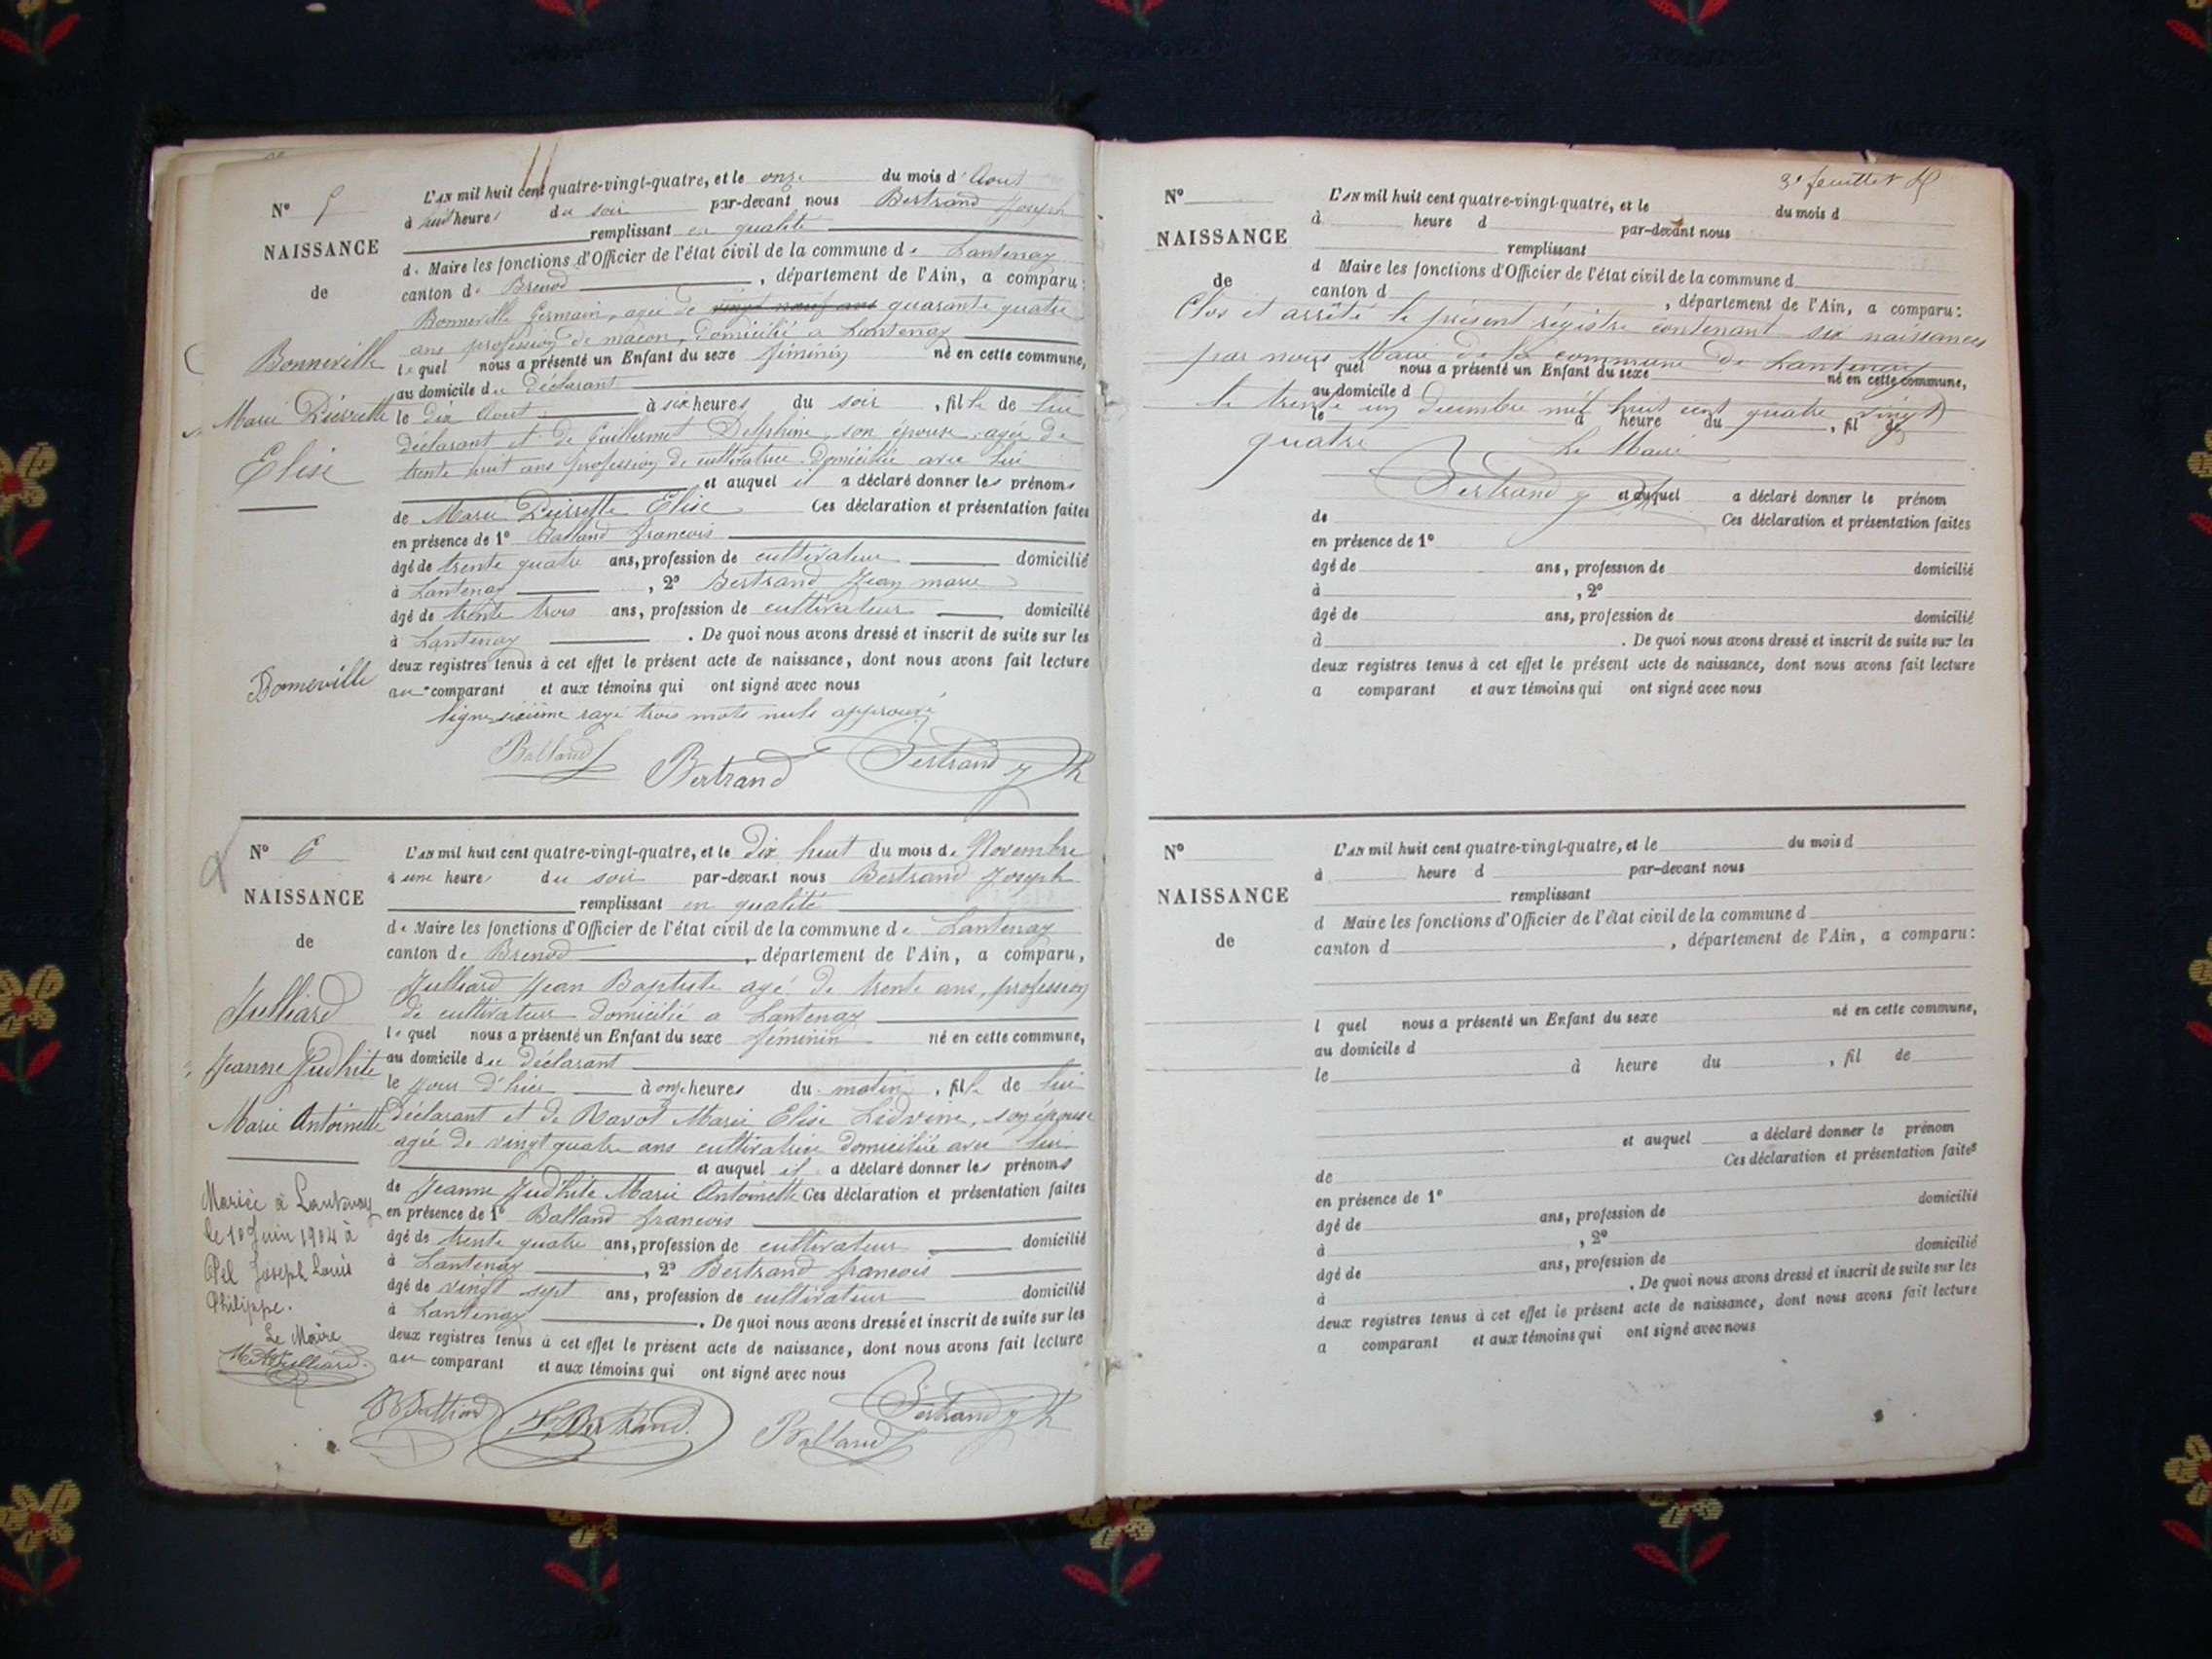 N° 5
NAISSANCE
de
Bonneville
Marie Pierrette
Elise
Bonneville
L'AN mil huit cent quatre-vingt-quatre, et le onze du mois d'Aout
à heures du soir par-devant nous Bertrand Joseph
remplissant en qualité
de Maire les fonctions d'Officier de l'état civil de la commune de Lantenay
canton de Brenod, département de l'Ain, a comparu:
Bonneville Germain, agé de vingt neuf ans quarante quatre
ans profession de maçon, domicilié a Lantenay
lequel nous a présenté un Enfant du sexe féminin né en cette commune,
au domicile du déclarant
le dix Aout à six heures du soir, fille de lui
déclarant et de Guillermet Delphine son épouse agée de
trente huit ans profession de cultivatrice domiciliée avec lui
et auquel il a déclaré donner les prénoms
de Marie Pierrette Elise Ces déclaration et présentation faites
en présence de 1° Balland francois
âgé de trente quatre ans, profession de cultivateur domicilié
à Lantenay, 2° Bertrand Jean marie
âgé de trente trois ans, profession de cultivateur domicilié
à Lantenay. De quoi nous avons dressé et inscrit de suite sur les
deux registres tenus à cet effet le présent acte de naissance, dont nous avons fait lecture
au comparant et aux témoins qui ont signé avec nous
ligne sixième rayé trois mots nuls approuvé
Balland Bertrand Bertrand Jh
N° 6
NAISSANCE
de
Julliard
Jeanne Judhite
Marie Antoinette
Mariée à Lantenay
le 10 Juin 1904 à
Pel Joseph Louis
Philippe.
Le Maire
Julliard
L'AN mil huit cent quatre-vingt-quatre, et le dix huit du mois de Novembre
à une heure du soir par-devant nous Bertrand Joseph
remplissant en qualité
de Maire les fonctions d'Officier de l'état civil de la commune de Lantenay
canton de Brenod, département de l'Ain, a comparu,
Julliard Jean Baptiste agé de trente ans, profession
de cultivateur domicilié a Lantenay
lequel nous a présenté un Enfant du sexe féminin né en cette commune,
au domicile du déclarant
le jour d'hier à onze heures du matin, fille de lui
déclarant et de Ravot Marie Elise Lidvine, son épouse
agée de vingt quatre ans cultivatrice domiciliée avec lui
et auquel il a déclaré donner les prénoms
de Jeanne Judhite Marie Antoinette Ces déclaration et présentation faites
en présence de 1° Balland francois
âgé de trente quatre ans, profession de cultivateur domicilié
à Lantenay, 2° Bertrand francois
âgé de vingt sept ans, profession de cultivateur domicilié
à Lantenay. De quoi nous avons dressé et inscrit de suite sur les
deux registres tenus à cet effet le présent acte de naissance, dont nous avons fait lecture
au comparant et aux témoins qui ont signé avec nous
Bertrand Jh
F. Bertrand Balland
3e feuillet
N°
NAISSANCE
de
L'AN mil huit cent quatre-vingt-quatre, et le du mois d
à heure d par-devant nous
remplissant
d Maire les fonctions d'Officier de l'état civil de la commune d
canton d, département de l'Ain, a comparu:
Clos et arrêté le présent registre contenant six naissances
par nous Maire de la commune de Lantenay
l quel nous a présenté un Enfant du sexe né en cette commune,
au domicile d
le trente un decembre mil huit cent quatre vingt
le à heure du, fil de
quatre Le Maire
Bertrand Jh
et auquel a déclaré donner le prénom
de Ces déclaration et présentation faites
en présence de 1°
âgé de ans, profession de domicilié
à, 2°
âgé de ans, profession de domicilié
à. De quoi nous avons dressé et inscrit de suite sur les
deux registres tenus à cet effet le présent acte de naissance, dont nous avons fait lecture
a comparant et aux témoins qui ont signé avec nous
N°
NAISSANCE
de
L'AN mil huit cent quatre-vingt-quatre, et le du mois d
à heure d par-devant nous
remplissant
d Maire les fonctions d'Officier de l'état civil de la commune d
canton d, département de l'Ain, a comparu:
l quel nous a présenté un Enfant du sexe né en cette commune,
au domicile d
le à heure du, fil de
et auquel a déclaré donner le prénom
de Ces déclaration et présentation faites
en présence de 1°
âgé de ans, profession de domicilié
à, 2°
âgé de ans, profession de domicilié
à. De quoi nous avons dressé et inscrit de suite sur les
deux registres tenus à cet effet le présent acte de naissance, dont nous avons fait lecture
a comparant et aux témoins qui ont signé avec nous